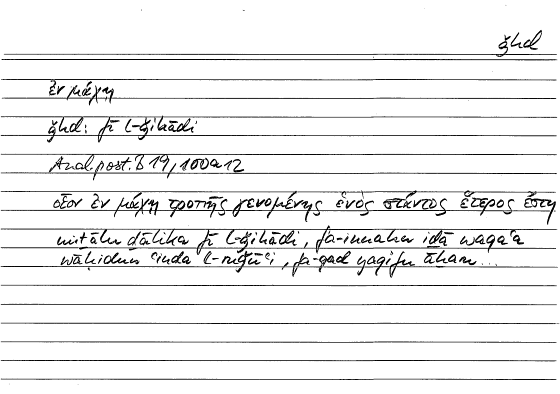 ǧhd
ἐν μάχῃ
ǧhd: fī l-ǧihādi
Anal.post. B 19, 100a12
οἷον ἐν μάχῃ τροπῆς γενομένης ἑνὸς στάντος ἕτερος ἔστη
miṯālu ḏālika fī l-ǧihādi, fa-innahu iḏā waqaʿa
wāḥidun ʿinda l-ruǧūʿi, fa-qad yaqifu āḫaru...